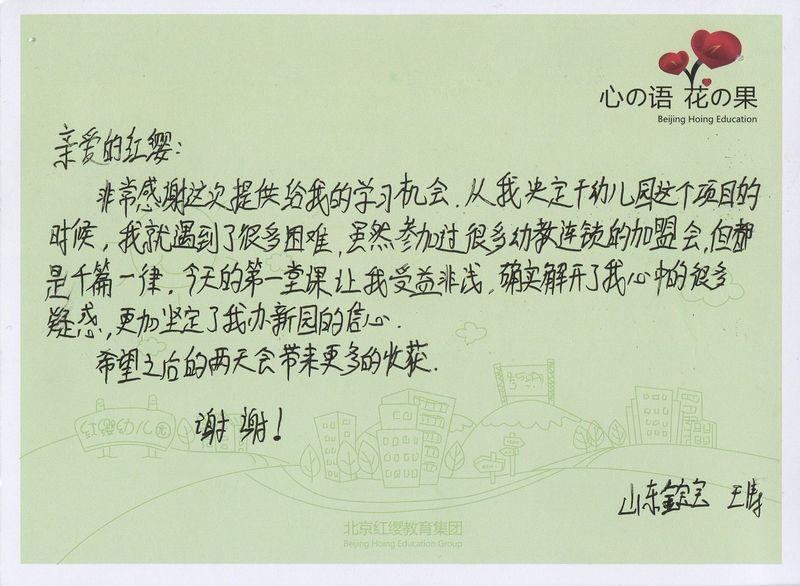 心の语 花の果
Beijing Hoing Education
亲爱的红缨：
非常感谢这次提供给我的学习机会.从我决定干幼儿园这个项目的
时候，我就遇到了很多困难，虽然参加过很多幼教连锁的加盟会，但都
是千篇一律.今天的第一堂课让我受益非浅.确实解开了我心中的很多
疑惑，更加坚定了我办新园的信心.
希望之后的两天会带来更多的收获.
红缨幼儿园
谢谢！
山东 王涛
北京红缨教育集团
Beijing Hoing Education Group